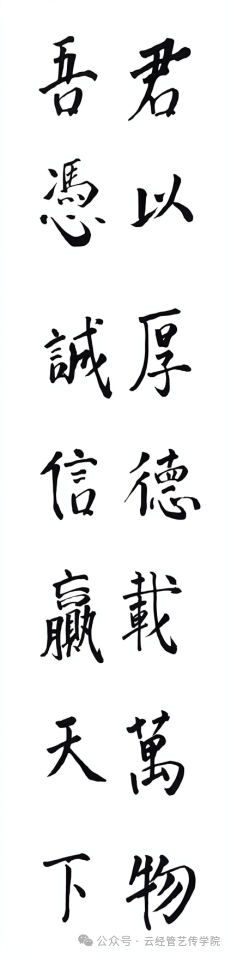 君以厚德載萬物
吾憑誠信贏天下
公众号·云经管艺传学院